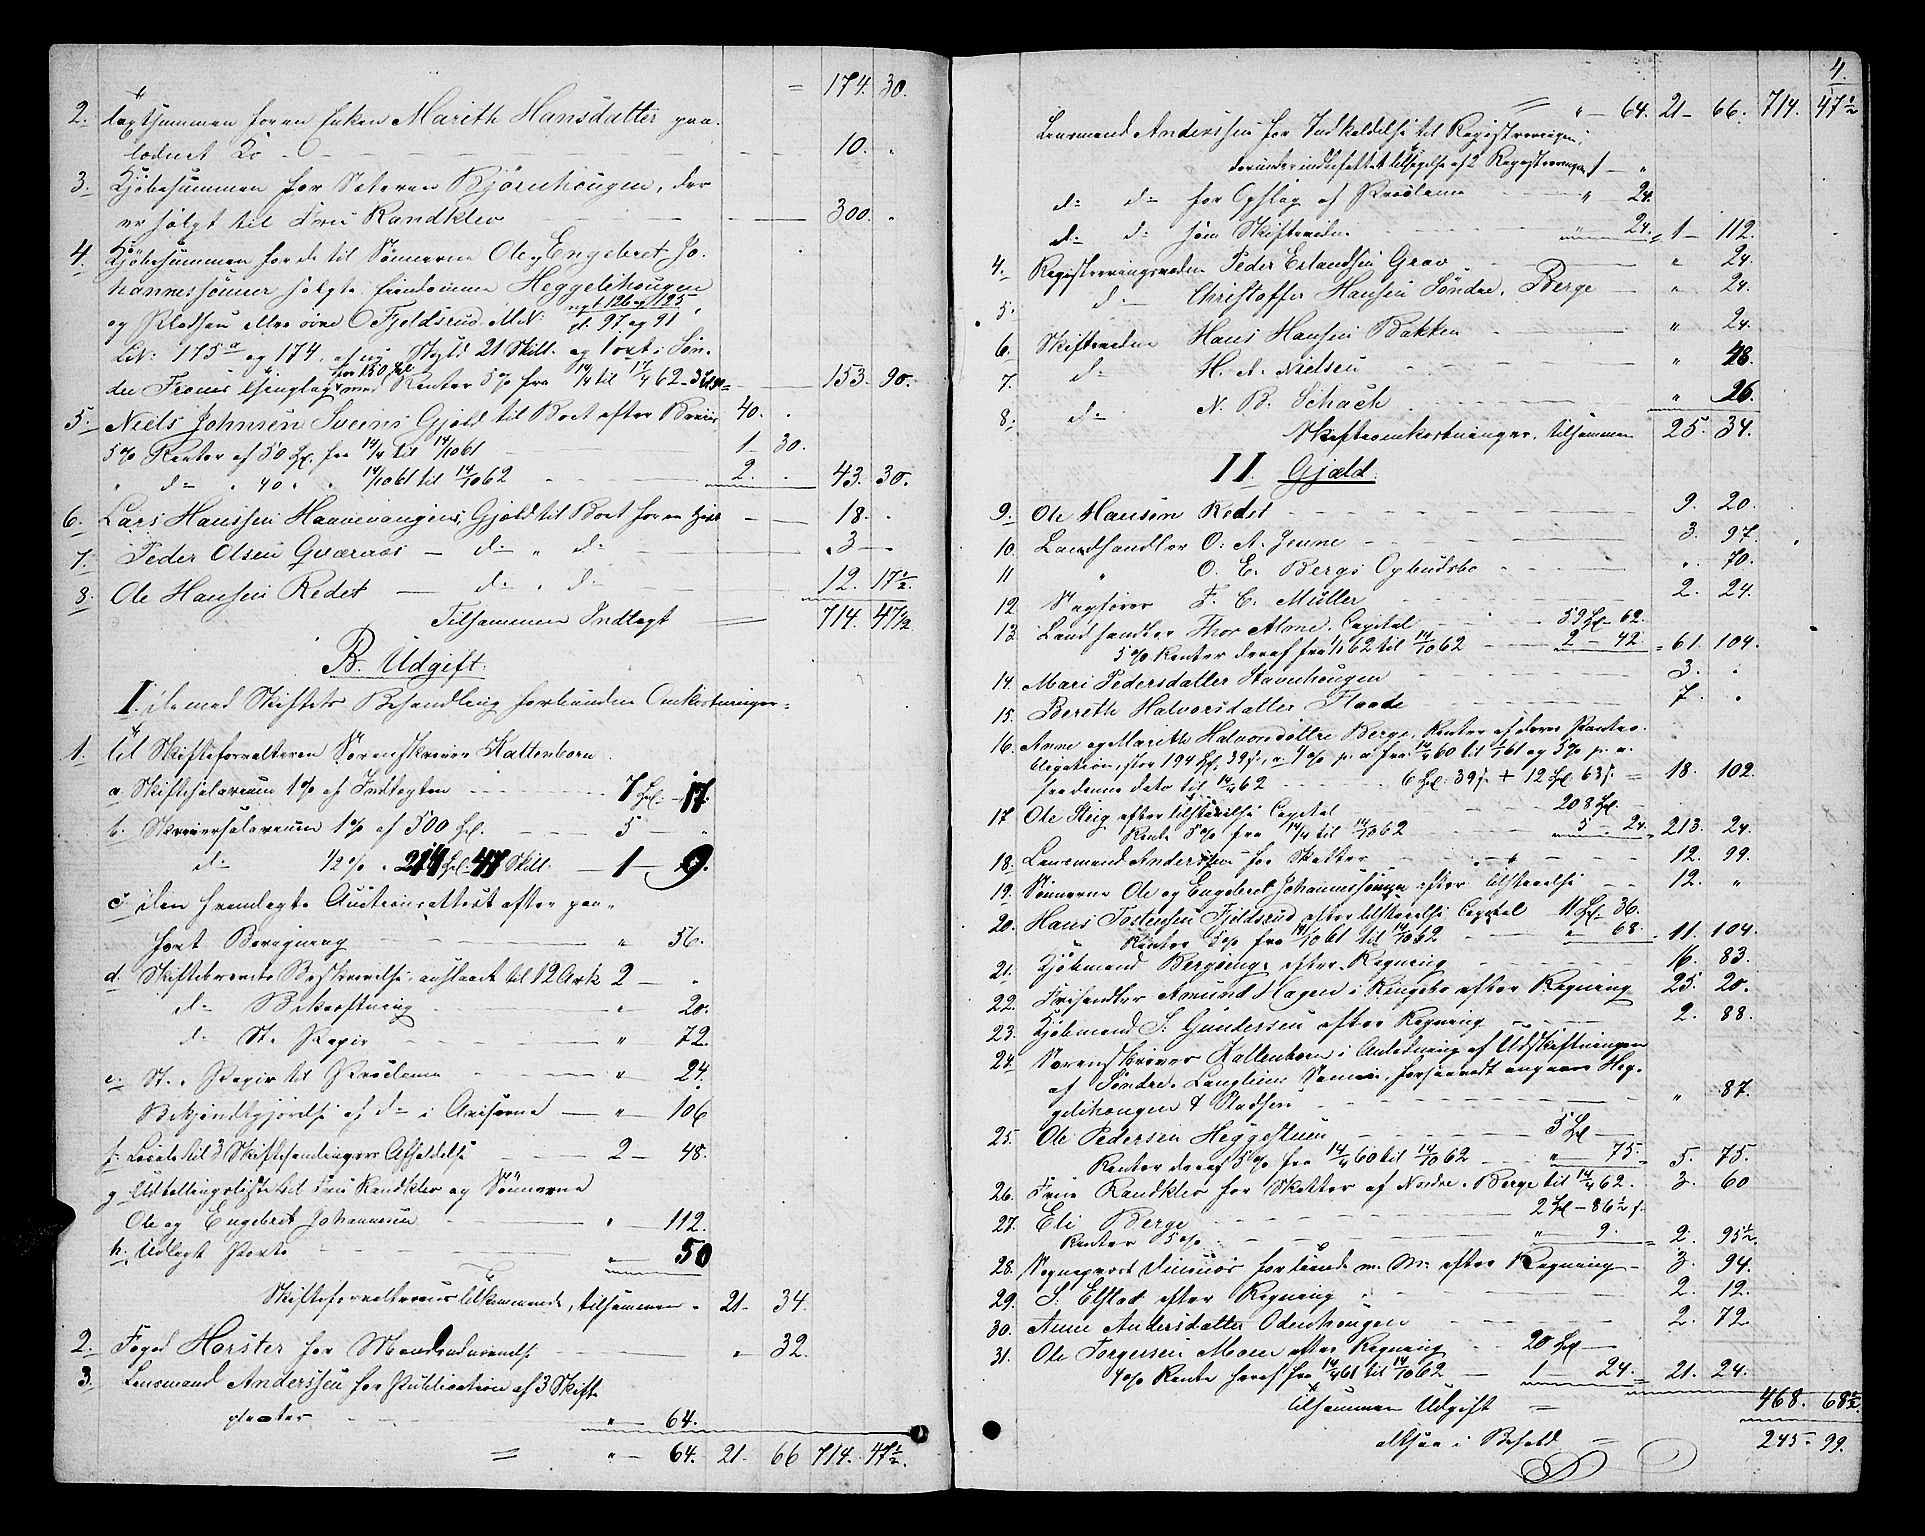 = 174. 30.
2. Taxtsummen for en Enken Marith Hansdatter paa-
lodnet Ko 10. "
3. Kjöbesummen for Sæteren Björnhougen, der
er solgt til Fru Randklev 300. "
4. Kjöbesummen for de til Sönnerne Ole og Engebret Jo-
hannessönner solgte Eiendomme Heggelihougen
og Pladsen ellers övre Fjeldsrud, M.N. mgt 126 og 125 gl. 97 og 91,
L.N. 175a og 174, af ny Skyld 21 Skill. og Taxt i Sön-
dre Frons Thinglag for 150 Spd med Renter 5% fra 14/4 til 14/4 62 153. 90.
5. Niels Johnsen Sveens Gjæld til Boet efter Beviis 40. "
5% Renter af 50 Spd. fra 14/4 til 14/10 61 1 - 30.
" do " 40 " " 14/10 61 til 14/10 62 2. " 43. 30.
6. Lars Hanssen Haavevangens Gjæld til Boet for en Hest 18. "
7. Peder Olsen Gværnæs - do " do - 3 -
8. Ole Hansen Redet - do " do 12. 17½
Tilsammen Indtægt = 714. 47½
B. Udgift.
I. de med Skiftets Behandling forbundne Omkostninger:
1. Til Skifteforvalteren Sorenskriver Kaltenborn.
a. Skiftesalarium 1% af Indtægten 7 Spd. - 17.
b. Skriversalarium 1% af 500 Spd. 5 - "
do ½% " 214 Spd. 47 Skill. - 1 - 9.
c. den fremlagte Auctionsattest efter paa-
fört Beregning " 56.
d. Skiftebrevets Beskrivelse, anslaaet til 12 Ark 2 - "
do Bekræftning " - 20.
do St. Papir " - 72.
e. St. Papir til Proclama " - 24.
Bekjendtgjörelse af do i Aviserne - " - 106
f. Locale til 3 Skiftesamlingers Afholdelse 2 - 48.
g. Udtællingsliste til Fru Randklev og Sönnerne
Ole og Engebret Johannessen " - 112.
h. Udlagt Porto " 50
Skifteforvalterens Tilkommende, tilsammen = 21 - 34.
2. Foged Horster for Mandsnævnelse " 32.
3. Lensmand Anderssen for Publication af 3 Skifte-
placter " 64.
= " - 64. 21. 66 714. 47½.
4.
= " - 64. 21 - 66. 714. 47½
Lensmand Anderssen for Indkaldelse til Registreringen,
derunder indbefattet tilsigelse af 2 Registreringsm. 1 - "
do do for Opslag af Proclama " - 24.
do do som Skiftevidne " 24. = 1 - 112.
4. Registreringsvidne Peder Erlandsen Grav " 24.
5. do Christoffer Hansen Söndre Berge " 24.
6. Skiftevidne Hans Hansen Bakken " 24.
7. do H. A. Nielsen " 48.
8. do N. B. Schach " 26.
Skifteomkostninger, tilsammen 25. 34.
II. Gjæld.
9. Ole Hansen Redet 9. 20.
10. Landhandler O. A. Jenne 3. 97.
11 " O. E. Bergs Opbudsbo " 70.
12 Sagförer F. C. Müller 2. 24.
13. Landhandler Thor Alme, Capital 59 Spd - 62.
5% Renter deraf fra 1/1 62 til 14/10 62 2 - 42 = 61. 104.
14. Mari Pedersdatter Stavnhougen 3. "
15. Berith Halvorsdatter Flaate 7. "
16. Anne og Marith Halvorsdöttre Berge, Renter af deres Pante-
obligation, stor 194 Spd. 39 s., a 4% p. a fra 14/4 60 til 1/4 61 og 5% p. a.
fra denne dato til 14/4 62 6 Spd. 39 s. + 12 Spd 63 s. = 18. 102.
17 Ole Steig efter tilstaaelse Capital 208 Spd. -
Rente 5% fra 14/4 til 14/10 62 5 - 24. = 213. 24.
18. Lensmand Anderssen for Skatter 12. 99.
19. Sönnerne Ole og Engebret Johannessönner efter Tilstaaelse 12. "
20. Hans Tostensen Fjeldsrud efter tilstaaelse Capital 11 Spd. 36.
Renter 5% fra 14/10 61 til 14/10 62 " 68. = 11. 104.
21. Kjöbmand Bergseng efter Regning 16. 83.
22. Frihandler Amund Hagen i Ringebo efter Regning 25. 20.
23. Kjöbmand S. Gundersen efter Regning 2. 88.
24. Sorenskriver Kaltenborn i Anledning af Udskiftningen
af Söndre Langlien Sameie, forsaavidt angaaer Heg-
gelihougen & Pladsen " 87.
25. Ole Pedersen Heggestuen 5 Spd -
Renter deraf 5% fra 14/4 60 til 14/10 62 " 75. = 5. 75.
26. Frue Randklev for Skatter af Nordre Berge til 14/4 62. 3. 60
27. Eli Berge 2 Spd - 86½ s.
Renter 5% " 9. = 2. 95½.
28. Sogneprest for Tiende m. M. efter Regning 3. 94.
29. S. Elstad efter Regning 2. 12.
30. Anne Andersdatter Odenhougen 2. 72.
31. Ole Torgersen Moen efter Regning 20 Spd -
4% Rente heraf fra 14/4 61 til 14/10 62 1 - 24. = 21. 24.
Tilsammen Udgift = 468. 68½.
altsaa i Behold = 245 - 99.